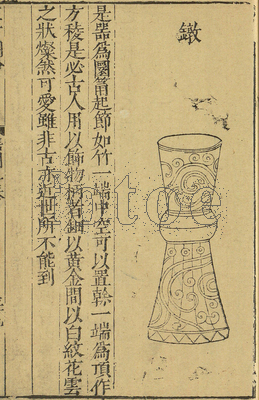 鐓
是器為圜筩起節如竹一端中空可以置榦一端為頂作
方稜是必古人用以飾物柄者錯以黃金間以白紋花雲
之狀燦然可愛雖非古亦近世所不能到